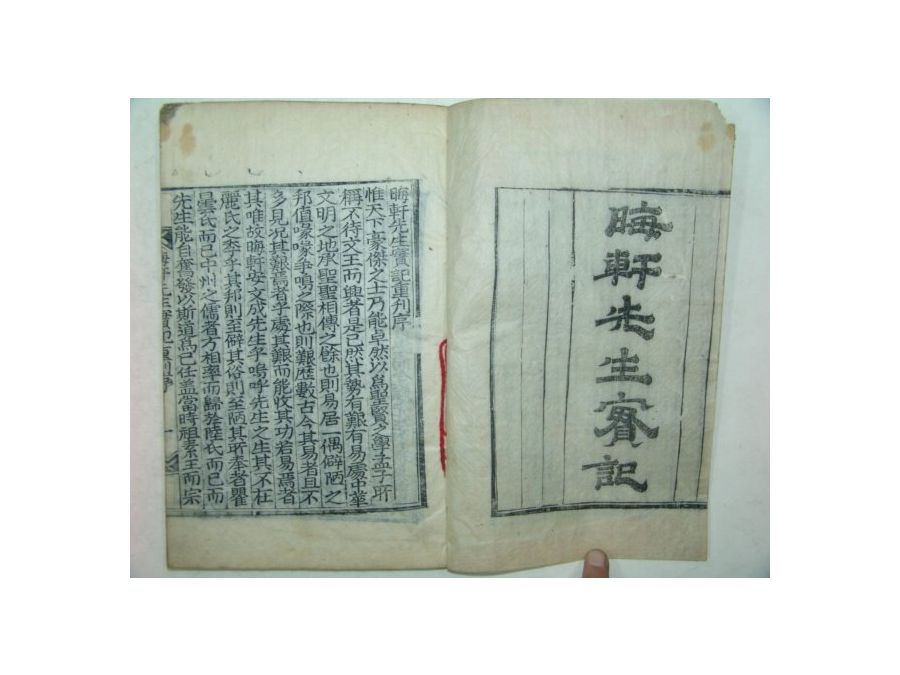 晦軒先生實記
晦軒先生實記重刊序
惟天下豪傑之士乃能卓然以爲聖賢之學孟子所
稱不待文王而興者是已然其勢有艱有易處中華
文明之地承聖聖相傳之餘也則易居一偶僻陋之
邦值喙喙爭鳴之際也則艱歷數古今其易者且不
多見况其艱焉者乎處其艱而能收其功若易焉者
其唯故晦軒安文成先生乎嗚呼先生之生其不在
麗氏之季乎其邦則至僻其俗則至陋其所奉者瞿
曇氏而已中州之儒者方相率而歸於陸氏而已而
先生能自奮發以斯道爲己任盖當時祖素王而宗